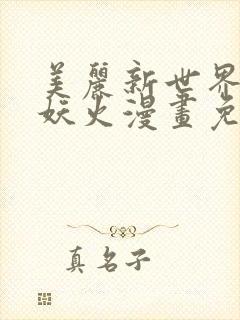 美麗新世界
妖火漫畫免
真名子